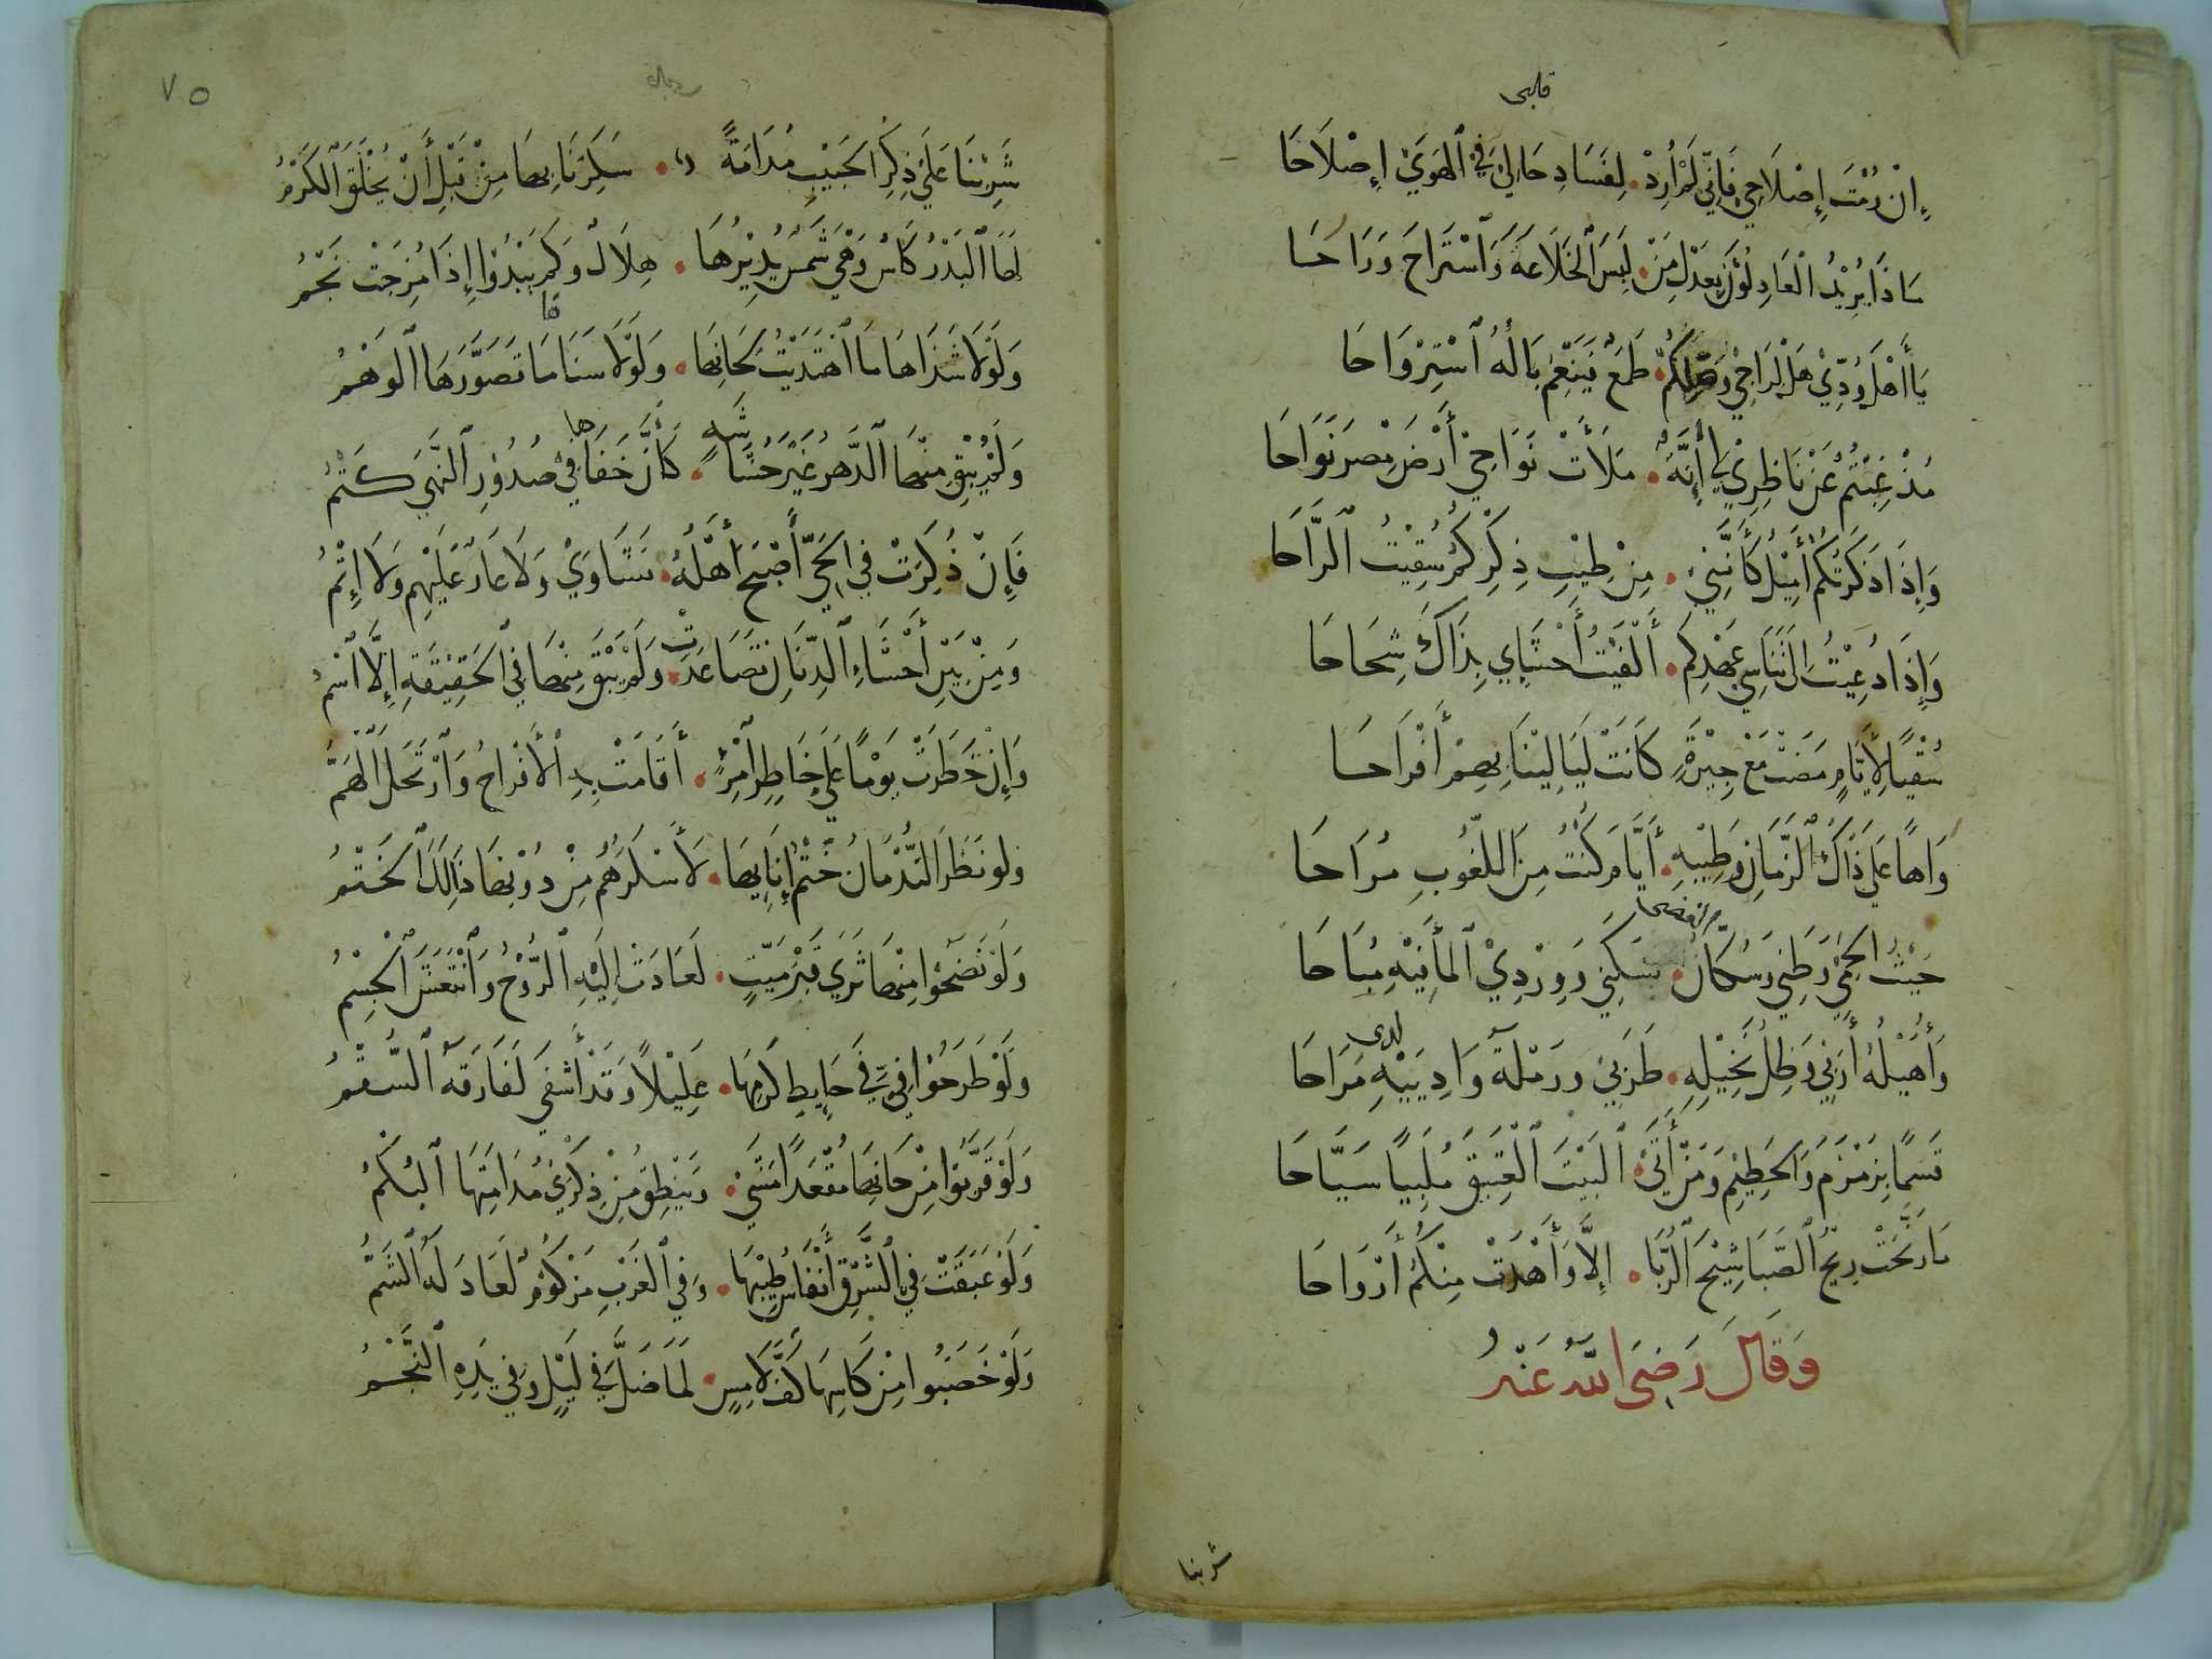 قلبى
إِنْ رُمْتَ إِصْلَاحِي فَإِنِّي لَمْ أُرِدْ لِفَسَادِ حَالِي فِي ٱلْهَوَيٰ إِصْلَاحَا
مَاذَا يُرِيْدُ ٱلْعَاذِلُوْنَ بِعَذْلِ مَنْ لَبِسَ ٱلْخَلَاعَةَ وَٱسْتَرَاحَ وَرَاحَا
يَا أَهْلَ وُدِّيْ هَلْ لِرَاجِيْ وَصْلِكُمْ طَمَعٌ فَيَنْعَمَ بَالُهُ ٱسْتِرْوَاحَا
مُذْ غِبْتُمُ عَنْ نَاظِرِيْ لِي أَنَّةٌ مَلَأَتْ نَوَاحِيْ أَرْضَ مِصْرَ نَوَاحَا
وَإِذَا ذَكَرْتُكُمُ أَمِيْلُ كَأَنَّنِيْ مِنْ طِيْبِ ذِكْرِكُمُ سُقِيْتُ ٱلرَّاحَا
وَإِذَا دُعِيْتُ إِلَى تَنَاسِي عَهْدِكُم أَلْفَيْتُ أَحْشَايِي بِذَاكَ شِحَاحَا
سُقْيًا لِأَيَّامٍ مَضَتْ مَعْ جِيْرَةٍ كَانَتْ لَيَالِيْنَا بِهِمْ أَفْرَاحَا
وَاهًا عَلَى ذَاكَ ٱلزَّمَانِ وَطِيْبِهِ أَيَّامَ كُنْتُ مِنَ اللُّغُوبِ مُرَاحَا
حَيْثُ ٱلْحِمَيٰ وَطَنِي وَسُكَّانُ الغضا سَكَنِي وَوِرْدِيْ ٱلْمَأَفِيْهِ مُبَاحَا
وَأُهَيْلُهُ أَرَبِي وَظِلُّ نَخِيْلِهِ طَرَبِيْ وَرَمْلَةُ وَادِيَيْهِ مَرَاحَا
لدى
قَسَمًا بِزَمْزَمَ وَٱلْحَطِيْمِ وَمَنْ أَتَيٰ ٱلْبَيْتَ ٱلْعَتِيْقَ مُلَبِيًا سَيَّاحَا
مَا رَنَّحَتْ رِيْحُ ٱلصَّبَا شِيْحَ ٱلرُّبَا إِلَّا وَأَهْدَتْ مِنْكُمُ أَرْوَاحَا
وَقَالَ رَضِيَ اللَّهُ عَنْهُ
شربنا
٧٥
شَرِبْنَا عَلَيٰ ذِكْرِ ٱلْحَبِيْبِ مُدَامَةً سَكِرْنَا بِهَا مِنْ قَبْلِ أَنْ يُخْلَقَ ٱلْكَرْمُ
لَهَا ٱلْبَدْرُ كَأْسٌ وَهْيَ شَمْسٌ يُدِيْرُهَا هِلَالٌ وَكَمْ يَبْدُوْا إِذَا مُزِجَتْ نَجْمُ
وَلَوْلَا شَذَاهَا مَا ٱهْتَدَيْتُ لِحَانِهَا وَلَوْلَا سَنَاها مَا تَصَوَّرَهَا ٱلْوَهْمُ
وَلَمْ يُبْقِ مِنْهَا ٱلدَّهْرُ غَيْرَ حُشَاشَةٍ كَأَنَّ خَفَاها فِيْ صُدُوْرِ ٱلنُّهَيٰ كَتْمُ
فَإِنْ ذُكِرَتْ فِي ٱلْحَيِّ أَصْبَحَ أَهْلُهُ نَشَاوَيْ وَلَا عَارٌ عَلَيْهِمْ وَلَا إِثْمُ
وَمِنْ بَيْنِ أَحْشَاءِ ٱلدِّنَانِ تَصَاعَدَتْ وَلَمْ يَبْقَ مِنْهَا فِي ٱلْحَقِيْقَةِ إِلَّا ٱسْمُ
وَإِنْ خَطَرَتْ يَوْمًا عَلَى خَاطِرِ ٱمْرِئٍ أَقَامَتْ بِهِ ٱلْأَفْرَاحُ وَٱرْتَحَلَ ٱلْهَمُّ
ولو نَظَرَ ٱلنُّدْمَانُ خَتْمَ إِنَايِهَا لَأَسْكَرَهُمْ مِنْ دُوْنِهَا ذَلِكَ ٱلْخَتْمُ
وَلَوْ نَضَحُوْا مِنْهَا ثَرَيٰ قَبْرِ مَيِّتٍ لَعَادَتْ إِلَيْهِ ٱلرُّوْحُ وَٱنْتَعَشَ ٱلْجِسْمُ
وَلَوْ طَرَحُوْا فِيْ فَيِّ حَايِطِ كَرْمِهَا عَلِيْلًا وَقَدْ أَشْفَيٰ لَفَارَقَهُ ٱلسُّقْمُ
وَلَوْ قَرَّبُوْا مِنْ حَانِهَا مُقْعَدًا مَشَيٰ وَيَنْطِقُ مِنْ ذِكْرَيٰ مُدَامَتِهَا ٱلْبُكْمُ
وَلَوْ عَبَقَتْ فِي ٱلشَّرْقِ أَنْفَاسُ طِيْبِهَا وَفِي ٱلْغَرْبِ مَزْكُوْمٌ لَعَادَ لَهُ ٱلشَّمُّ
وَلَوْ خَضَبُوا مِنْ كَاسِهَا كَفَّ لَامِسٍ لَمَا ضَلَّ فِي لَيْلٍ وَفِي يَدِهِ ٱلنَّجْمُ